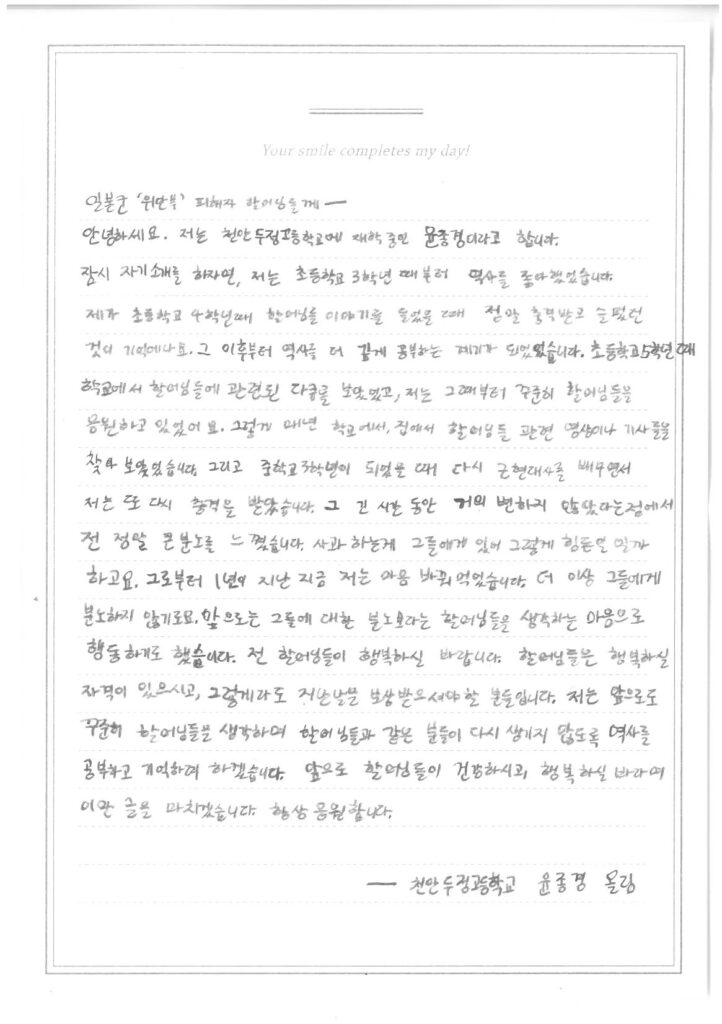 Your smile completes my day!
일본군 '위안부' 피해자 할머님들께 —
안녕하세요. 저는 천안두정고등학교에 재학중인 윤종경이라고 합니다.
잠시 자기소개를 하자면, 저는 초등학교 3학년 때부터 역사를 좋아했었습니다.
제가 초등학교 4학년때 할머님들 이야기를 들었을 때 정말 충격받고 슬펐던
것이 기억에나요. 그 이후부터 역사를 더 깊게 공부하는 계기가 되었었습니다. 초등학교5학년때
학교에서 할머님들에 관련된 다큐를 보았었고, 저는 그때부터 꾸준히 할머님들을
응원하고 있었어요. 그렇게 매년 학교에서, 집에서 할머님들 관련 영상이나 기사들을
찾아 보았었습니다. 그리고 중학교3학년이 되었을 때 다시 근현대사를 배우면서
저는 또 다시 충격을 받았습니다. 그 긴 시간 동안 거의 변하지 않았다는점에서
전 정말 큰분노를 느꼈습니다. 사과 하는게 그들에게 있어 그렇게 힘든일 일까
하고요. 그로부터 1년이 지난 지금 저는 마음 바꿔 먹었습니다. 더 이상 그들에게
분노하지 않기로요. 앞으로는 그들에 대한 분노보다는 할머님들을 생각하는 마음으로
행동하기로 했습니다. 전 할머님들이 행복하실 바랍니다. 할머님들은 행복하실
자격이 있으시고, 그렇게라도 지난날을 보상받으셔야할 분들입니다. 저는 앞으로도
꾸준히 할머님들을 생각하며 할머님들과 같은 분들이 다시 생기지 않도록 역사를
공부하고 기억하려 하겠습니다. 앞으로 할머님들이 건강하시고, 행복하실 바라며
이만 글을 마치겠습니다. 항상 응원합니다.
— 천안두정고등학교 윤종경 올림